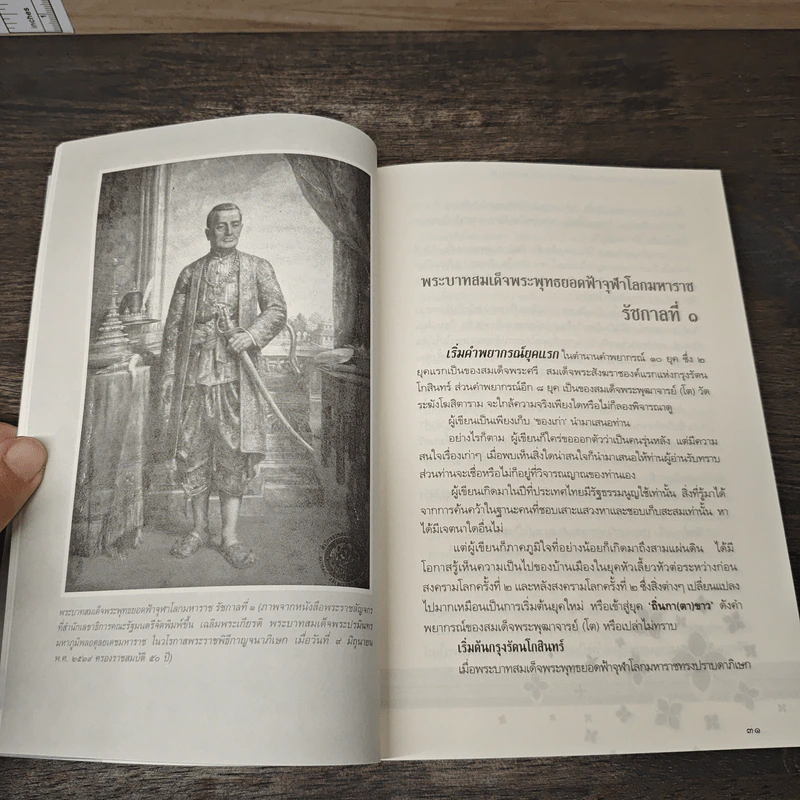 inches
1
พระบาทสมเด็จพระพุทธยอดฟ้าจุฬาโลกมหาราช รัชกาลที่ ๑ (ภาพจากหนังสือพระราชลัญจกร
ที่สำนักเลขาธิการคณะรัฐมนตรีจัดพิมพ์ขึ้น เฉลิมพระเกียรติ พระบาทสมเด็จพระปรมินทร
มหาภูมิพลอดุลยเดชมหาราช ในวโรกาสพระราชพิธีกาญจนาภิเษก เมื่อวันที่ ๙ มิถุนายน
พ.ศ. ๒๕๓๙ ครองราชสมบัติ ๕๐ ปี)
พระบาทสมเด็จพระพุทธยอดฟ้าจุฬาโลกมหาราช
รัชกาลที่ ๑
เริ่มคำพยากรณ์ยุคแรก ในตำนานคำพยากรณ์ ๑๐ ยุค ซึ่ง ๒
ยุคแรกเป็นของสมเด็จพระศรี สมเด็จพระสังฆราชองค์แรกแห่งกรุงรัตน
โกสินทร์ ส่วนคำพยากรณ์อีก ๘ ยุค เป็นของสมเด็จพระพุฒาจารย์ (โต) วัด
ระฆังโฆสิตาราม จะใกล้ความจริงเพียงใดหรือไม่ก็ลองพิจารณาดู
ผู้เขียนเป็นเพียงเก็บ 'ของเก่า' นำมาเสนอท่าน
อย่างไรก็ตาม ผู้เขียนก็ใคร่ขอออกตัวว่าเป็นคนรุ่นหลัง แต่มีความ
สนใจเรื่องเก่าๆ เมื่อพบเห็นสิ่งใดน่าสนใจก็นำมาเสนอให้ท่านผู้อ่านรับทราบ
ส่วนท่านจะเชื่อหรือไม่ก็อยู่ที่วิจารณญาณของท่านเอง
ผู้เขียนเกิดมาในปีที่ประเทศไทยมีรัฐธรรมนูญใช้เท่านั้น สิ่งที่รู้มาได้
จากการค้นคว้าในฐานะคนที่ชอบเสาะแสวงหาและชอบเก็บสะสมเท่านั้น หา
ได้มีเจตนาใดอื่นไม่
แต่ผู้เขียนก็ภาคภูมิใจที่อย่างน้อยก็เกิดมาถึงสามแผ่นดิน ได้มี
โอกาสรู้เห็นความเป็นไปของบ้านเมืองในยุคหัวเลี้ยวหัวต่อระหว่างก่อน
สงครามโลกครั้งที่ ๒ และหลังสงครามโลกครั้งที่ ๒ ซึ่งสิ่งต่างๆ เปลี่ยนแปลง
ไปมากเหมือนเป็นการเริ่มต้นยุคใหม่ หรือเข้าสู่ยุค 'ถิ่นกา(ตา)ขาว' ดังคำ
พยากรณ์ของสมเด็จพระพุฒาจารย์ (โต) หรือเปล่าไม่ทราบ
เริ่มต้นกรุงรัตนโกสินทร์
เมื่อพระบาทสมเด็จพระพุทธยอดฟ้าจุฬาโลกมหาราชทรงปราบดาภิเษก
๓๑